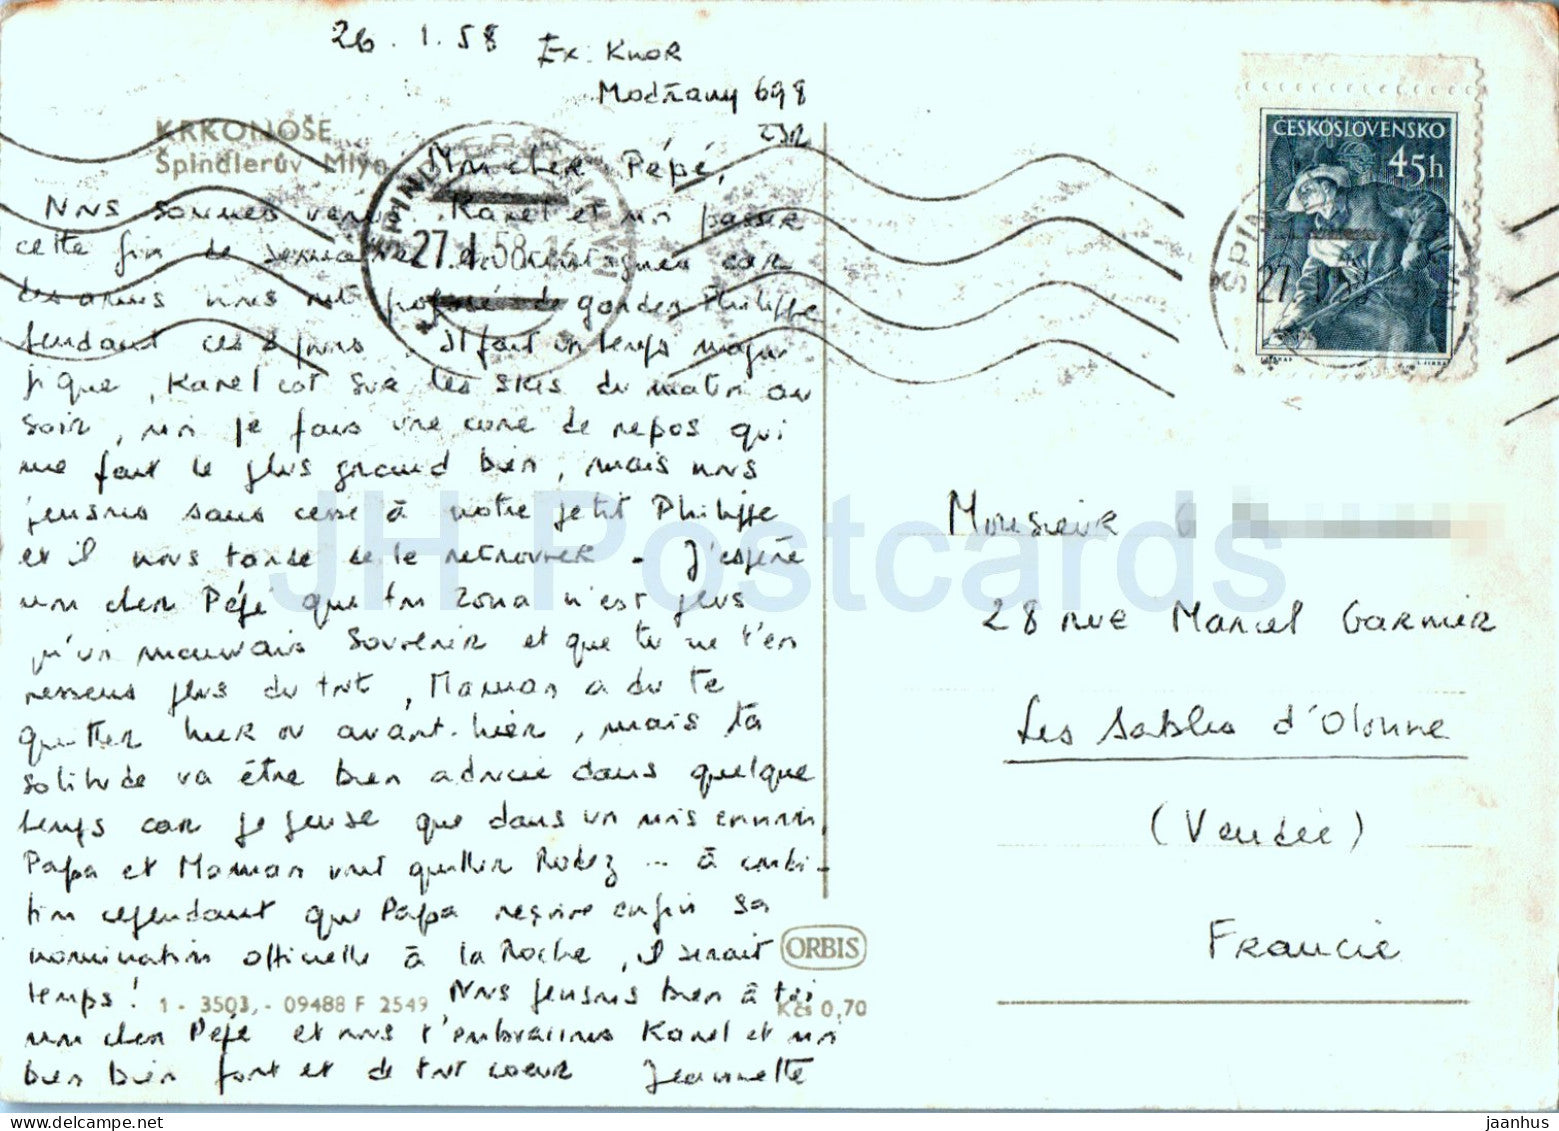 26.1.58 Ex: Knor
Modřany 698
ČSR
KRKONOŠE
Špindlerův Mlýn
Mon cher Pépé,
Nous sommes venus, Karel et moi passer
cette fin de semaine en montagnes car
des amis nous ont proposé de garder Philippe
pendant ces 2 jours. Il fait un temps magni
fique, Karel est sur les skis du matin au
soir, moi je fais une cure de repos qui
me fait le plus grand bien, mais nous
pensons sans cesse à notre petit Philippe
et il nous tarde de le retrouver - J'espère
mon cher Pépé que ton zona n'est plus
qu'un mauvais souvenir et que tu ne t'en
ressens plus du tout, Maman a du te
quitter hier ou avant-hier, mais ta
solitude va être bien adoucie dans quelque
temps car je pense que dans un mois environ,
Papa et Maman vont quitter Rodez -- à condi-
tion cependant que Papa reçoive enfin sa
nomination officielle à la Roche, il serait
temps! Nous pensons bien à toi
mon cher Pépé et nous t'embrassons Karel et moi
bien bien fort et de tout coeur Jeannette
1 - 3503,- 09488 F 2549
ORBIS
Kčs 0,70
27.I.58
ČESKOSLOVENSKO
45h
Monsieur G
28 rue Marcel Garnier
Les Sables d'Olonne
(Vendée)
Francie
JH Postcards
jaanhus